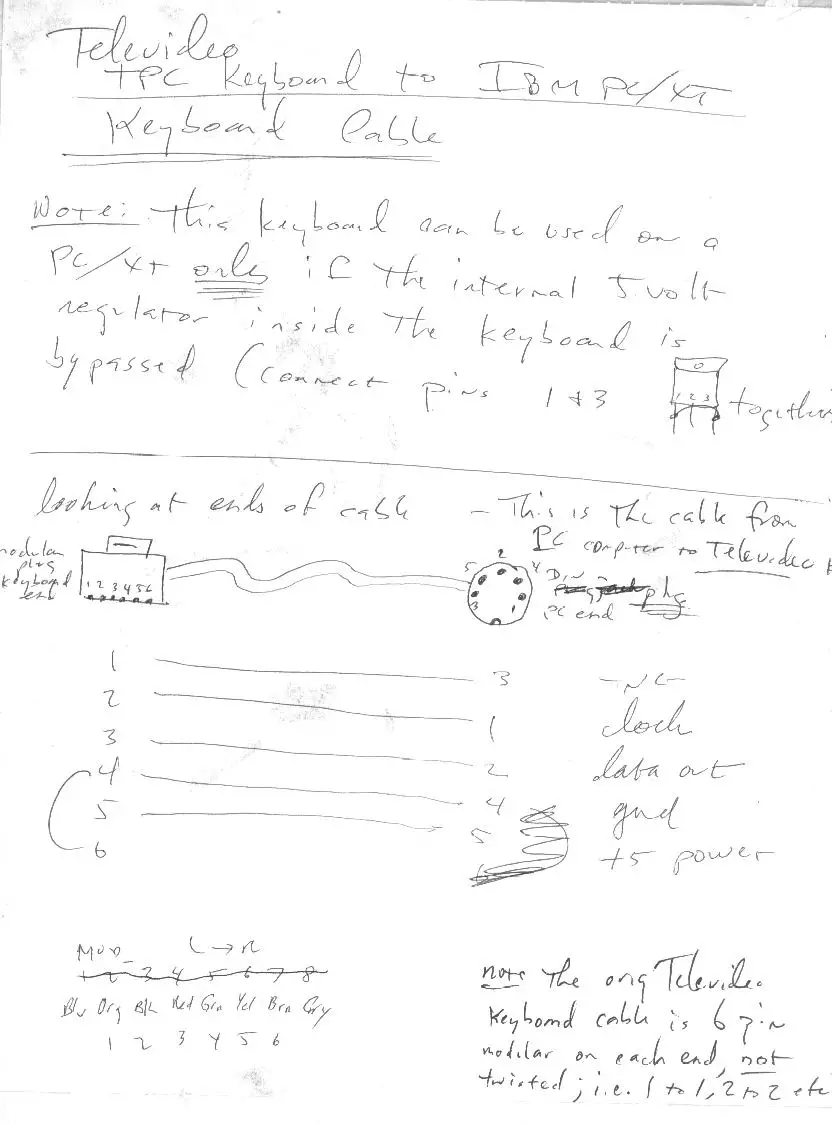 Televideo
TPC Keyboard to IBM PC/XT
Keyboard Cable
Note: This keyboard can be used on a
PC/XT only if the internal 5 volt
regulator inside the keyboard is
bypassed (connect pins 1 + 3 together
0
1 2 3
looking at ends of cable - This is the cable from
PC computer to Televideo k
modular
plug
keyboard
end
1 2 3 4 5 6
5 2 4
3 1
DIN plug
PC end
1 3 -NC-
2 1 clock
3 2 data out
4 4 gnd
5 5 +5 power
6
Mod L → R
1 2 3 4 5 6 7 8
Blu Org Blk Red Grn Yel Brn Gry
1 2 3 4 5 6
note The orig Televideo
Keyboard cable is 6 pin
modular on each end, not
twisted; i.e. 1 to 1, 2 to 2 etc